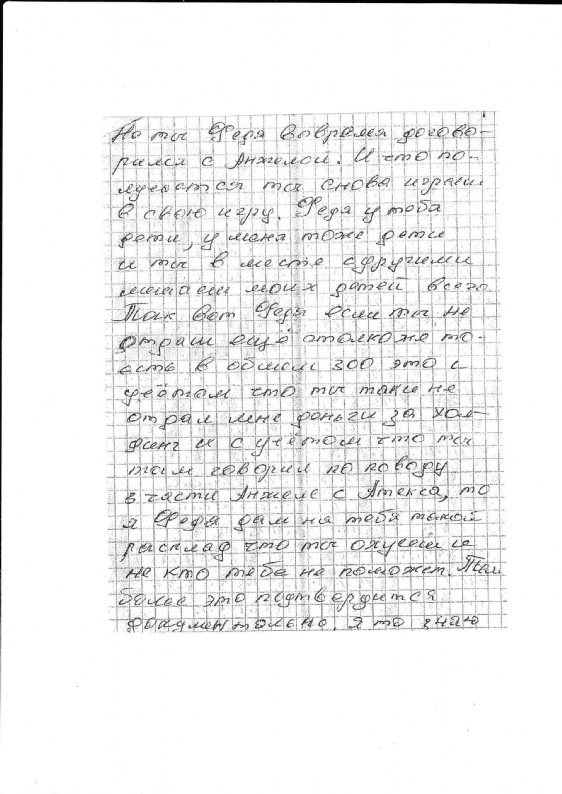 Но ты Федя вовремя догово-
рился с Анжелой. И что по-
лучается ты снова играеш
в свою игру. Федя у тебя
дети, у меня тоже дети
и ты в месте сдругими
лишаеш моих детей всего
Так вот Федя если ты не
отдаш ещё столкоже то-
есть в общем 300 это с
учётом что ты таки не
отдал мне деньги за хол-
динг и с учётом что ты
там говорил по поводу
части Анжеле с Атекса, то
я Федя дам на тебя такой
расклад что ты охуееш и
не кто тебе не поможет. Тем
более это подтвердится
документально. я то знаю